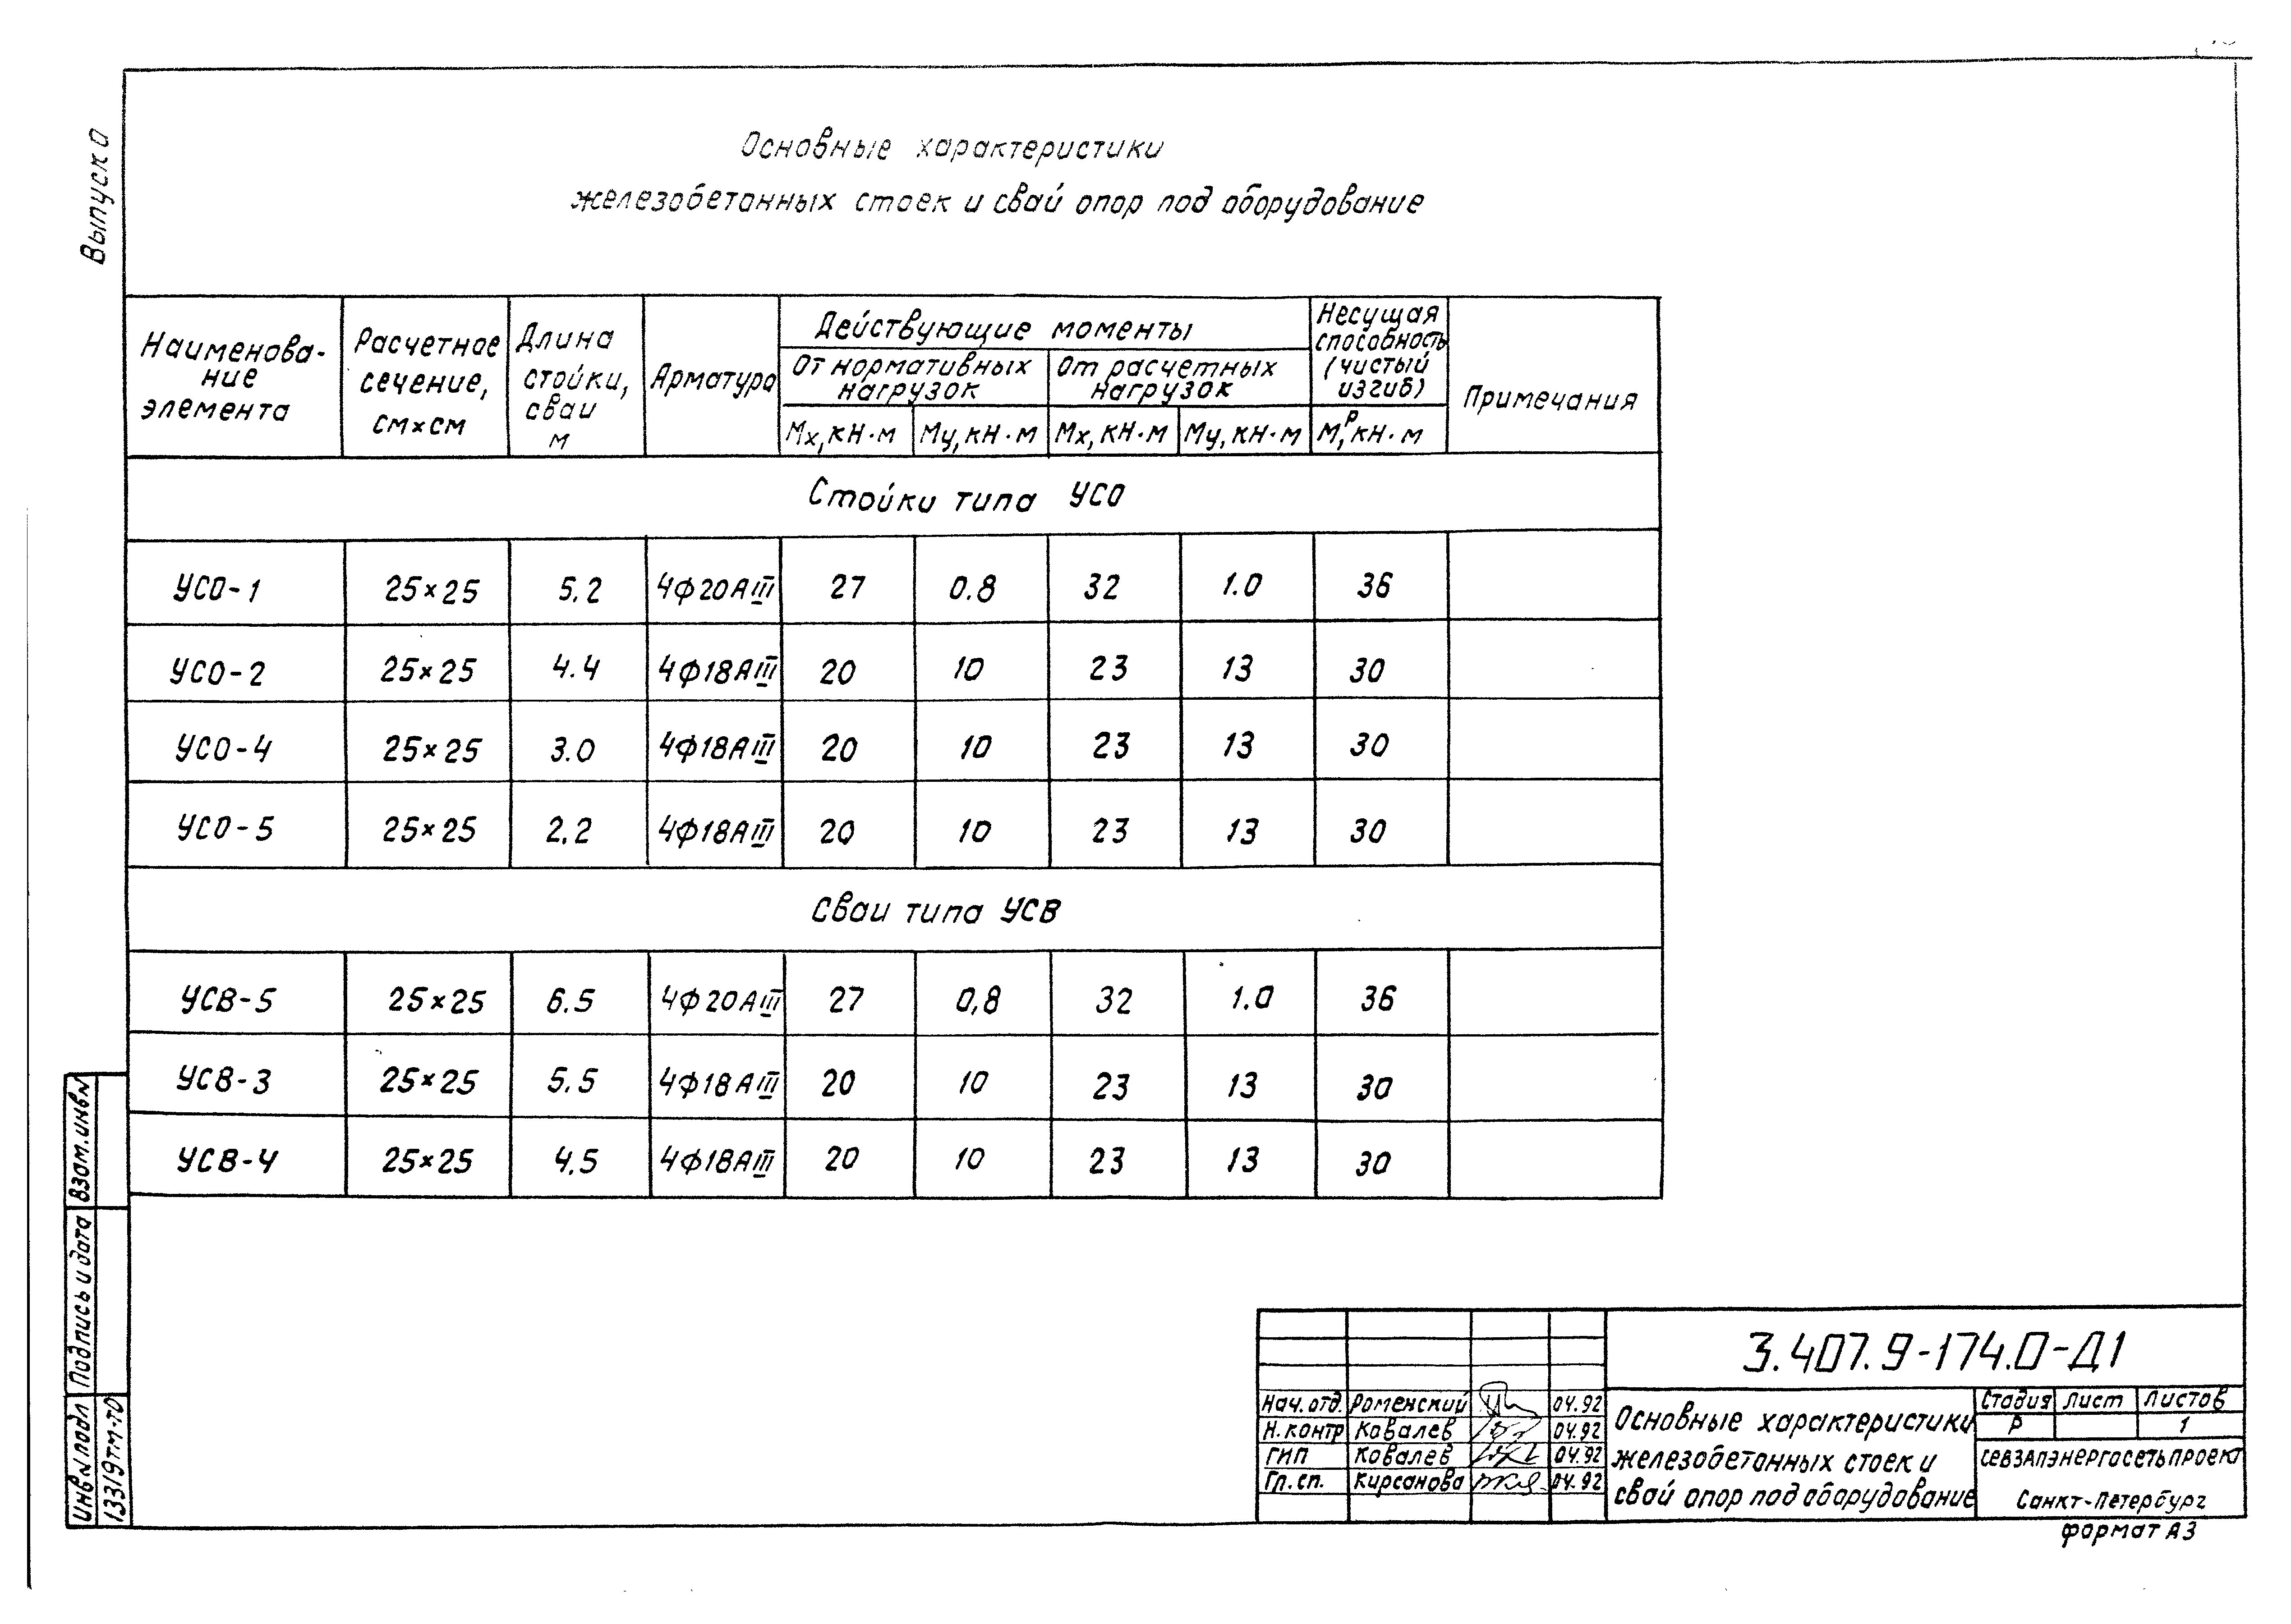 Выпуск 0
Основные характеристики
железобетонных стоек и свай опор под оборудование
Наименова-
ние
элемента
Расчетное
сечение,
см×см
Длина
стойки,
сваи
м
Арматура
Действующие моменты
От нормативных
нагрузок
От расчетных
нагрузок
Mx, кН·м Mу, кН·м Mx, кН·м Mу, кН·м
Несущая
способность
(чистый
изгиб)
Mᴾ, кН·м
Примечания
Стойки типа УСО
УСО-1 25×25 5.2 4ф20АIII 27 0.8 32 1.0 36
УСО-2 25×25 4.4 4ф18АIII 20 10 23 13 30
УСО-4 25×25 3.0 4ф18АIII 20 10 23 13 30
УСО-5 25×25 2,2 4ф18АIII 20 10 23 13 30
Сваи типа УСВ
УСВ-5 25×25 6.5 4ф20АIII 27 0,8 32 1.0 36
УСВ-3 25×25 5.5 4ф18АIII 20 10 23 13 30
УСВ-4 25×25 4.5 4ф18АIII 20 10 23 13 30
Взам.инв.N
Подпись и дата
Инв.N подл
13319тм-т0
3.407.9-174.0-Д1
Нач.отд. Роменский 04.92
Н.контр Ковалев 04.92
ГИП Ковалев 04.92
Гл.сп. Кирсанова 04.92
Основные характеристики
железобетонных стоек и
свай опор под оборудование
Стадия Лист Листов
Р 1
СЕВЗАПЭНЕРГОСЕТЬПРОЕКТ
Санкт-Петербург
формат А3